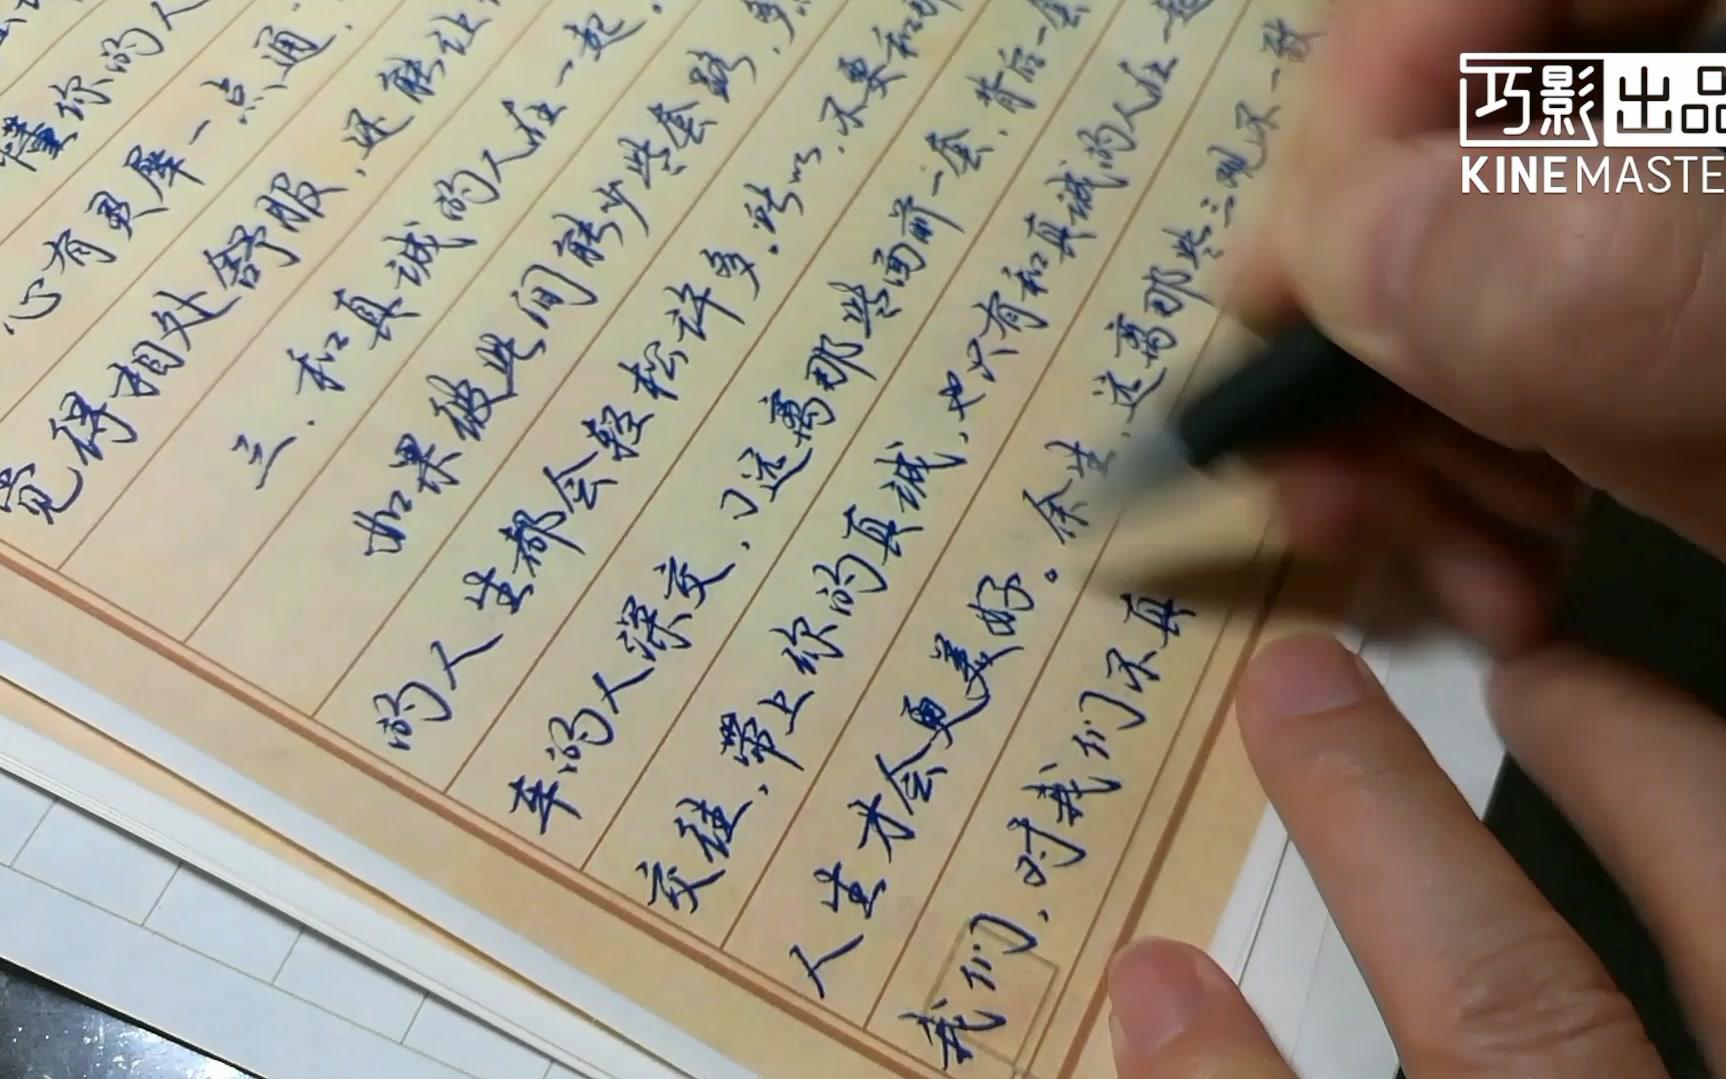 懂你的人
心有灵犀一点通.
觉得相处舒服,还能让
三.和真诚的人在一起.
如果彼此间能少些套路,多
的人生都会轻松许多.所以,不要和
率的人深交,习远离那些面前一套,背后一套
交往,带上你的真诚,也只有和真诚的人在一起
人生才会更美好。余生,远离那些三观不一致
我们,对我们不真
巧影出品
KINEMASTE